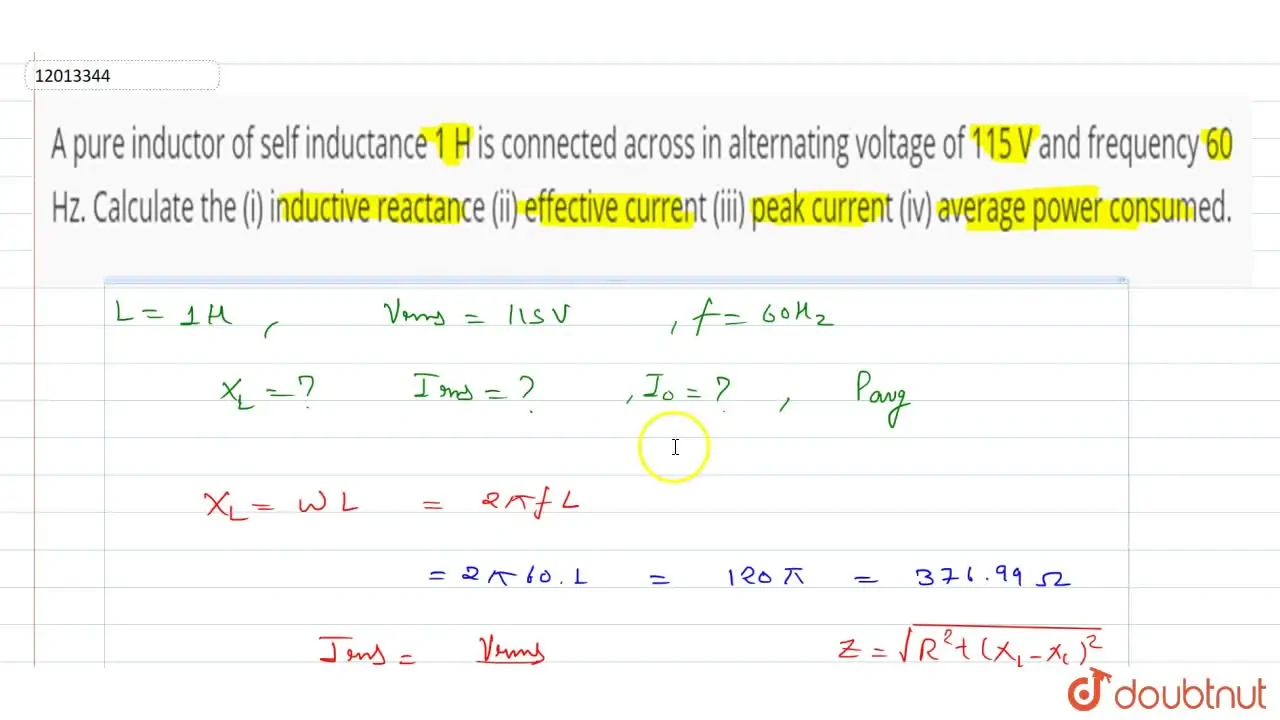 12013344
A pure inductor of self inductance 1 H is connected across in alternating voltage of 115 V and frequency 60
Hz. Calculate the (i) inductive reactance (ii) effective current (iii) peak current (iv) average power consumed.
L = 1H , Vrms = 115V , f = 60Hz
XL = ? Irms = ? , I0 = ? , Pavg
XL = ωL = 2πfL
= 2π60.1 = 120π = 376.99Ω
Irms = Vrms Z = √R²+(XL-XC)²
doubtnut